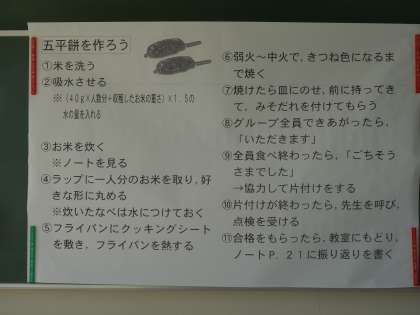 五平餅を作ろう
①米を洗う
②吸水させる
※(40g×人数分+収穫したお米の重さ)×1.5の
水の量を入れる
③お米を炊く
※ノートを見る
④ラップに一人分のお米を取り,好
きな形に丸める
※炊いたなべは水につけておく
⑤フライパンにクッキングシート
を敷き,フライパンを熱する
⑥弱火~中火で,きつね色になるま
で焼く
⑦焼けたら皿にのせ,前に持ってき
て,みそだれを付けてもらう
⑧グループ全員できあがったら,
「いただきます」
⑨全員食べ終わったら,「ごちそう
さまでした」
→協力して片付けをする
⑩片付けが終わったら,先生を呼び,
点検を受ける
⑪合格をもらったら,教室にもどり,
ノートP.21に振り返りを書く